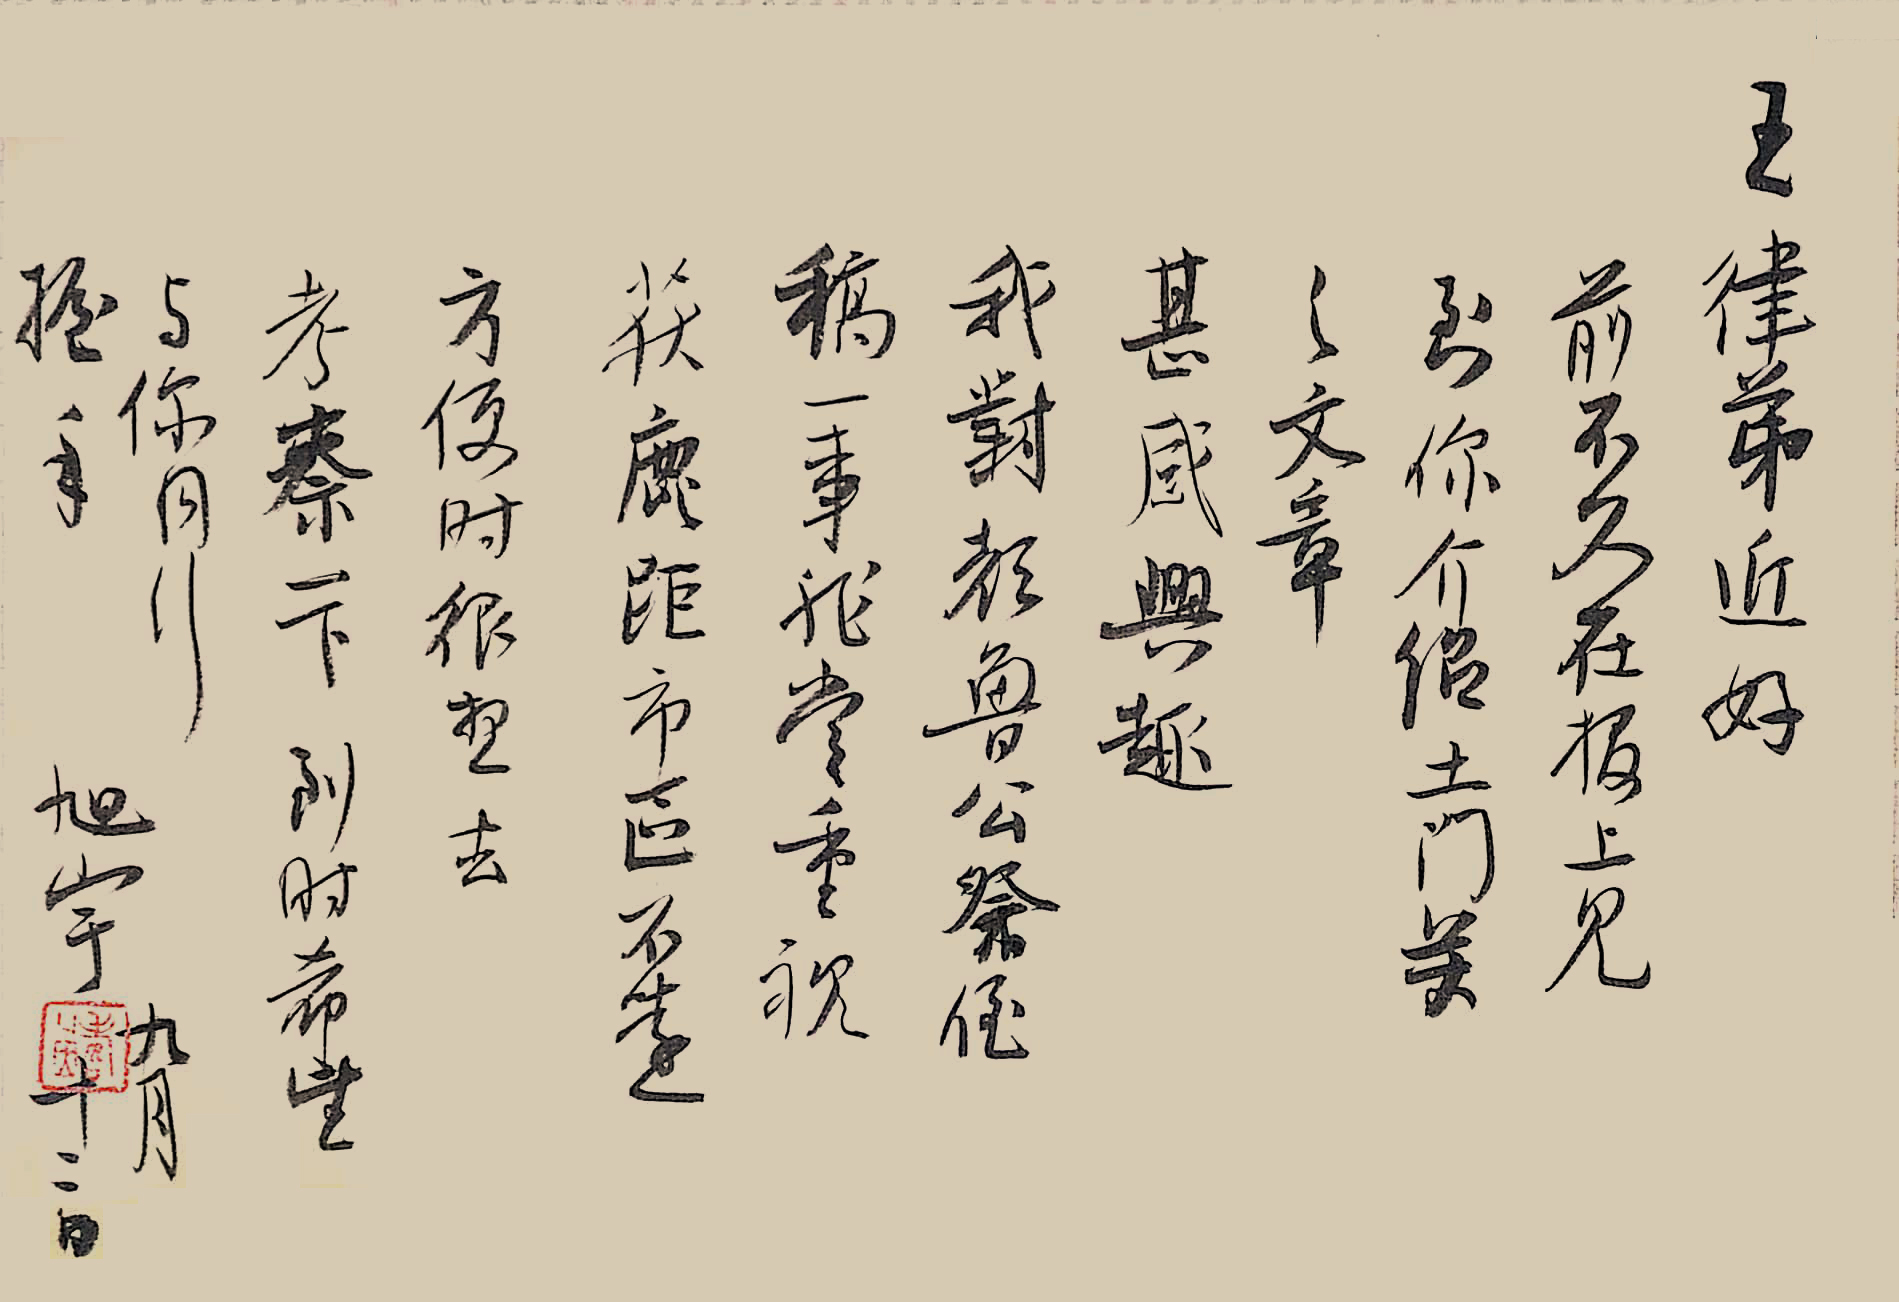 王律弟近好
前不久在报上见
到你介绍土门关
之文章
甚感興趣
我對颜魯公祭侄
稿一事非常重视
获鹿距市区不遠
方便时很想去
考察一下 到时希望
与你同行
握手
旭宇
九月
十二日